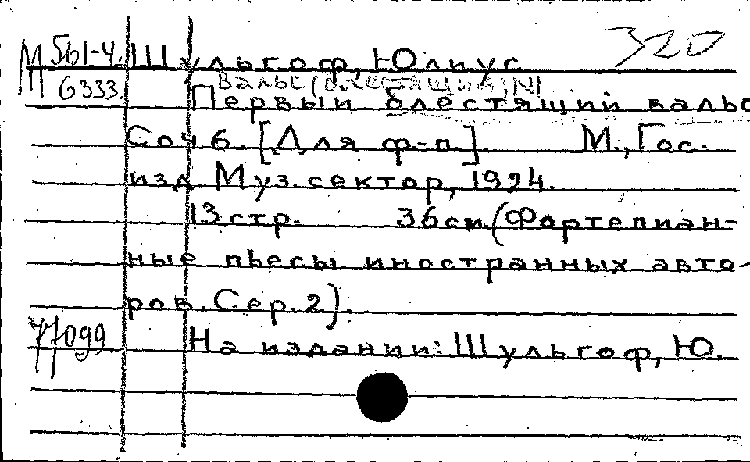 М 5Ы-4. Шульгоф, Юлиус 320
6333. Вальс (блестящий) №1
Первый блестящий вальс
Соч 6. [Для ф-п]. М., Гос.
изд Муз. сектор, 1924.
13 стр. 36 см. (Фортепиан-
ные пьесы иностранных авто-
ров. Сер. 2).
77099 На издании: Шульгоф, Ю.